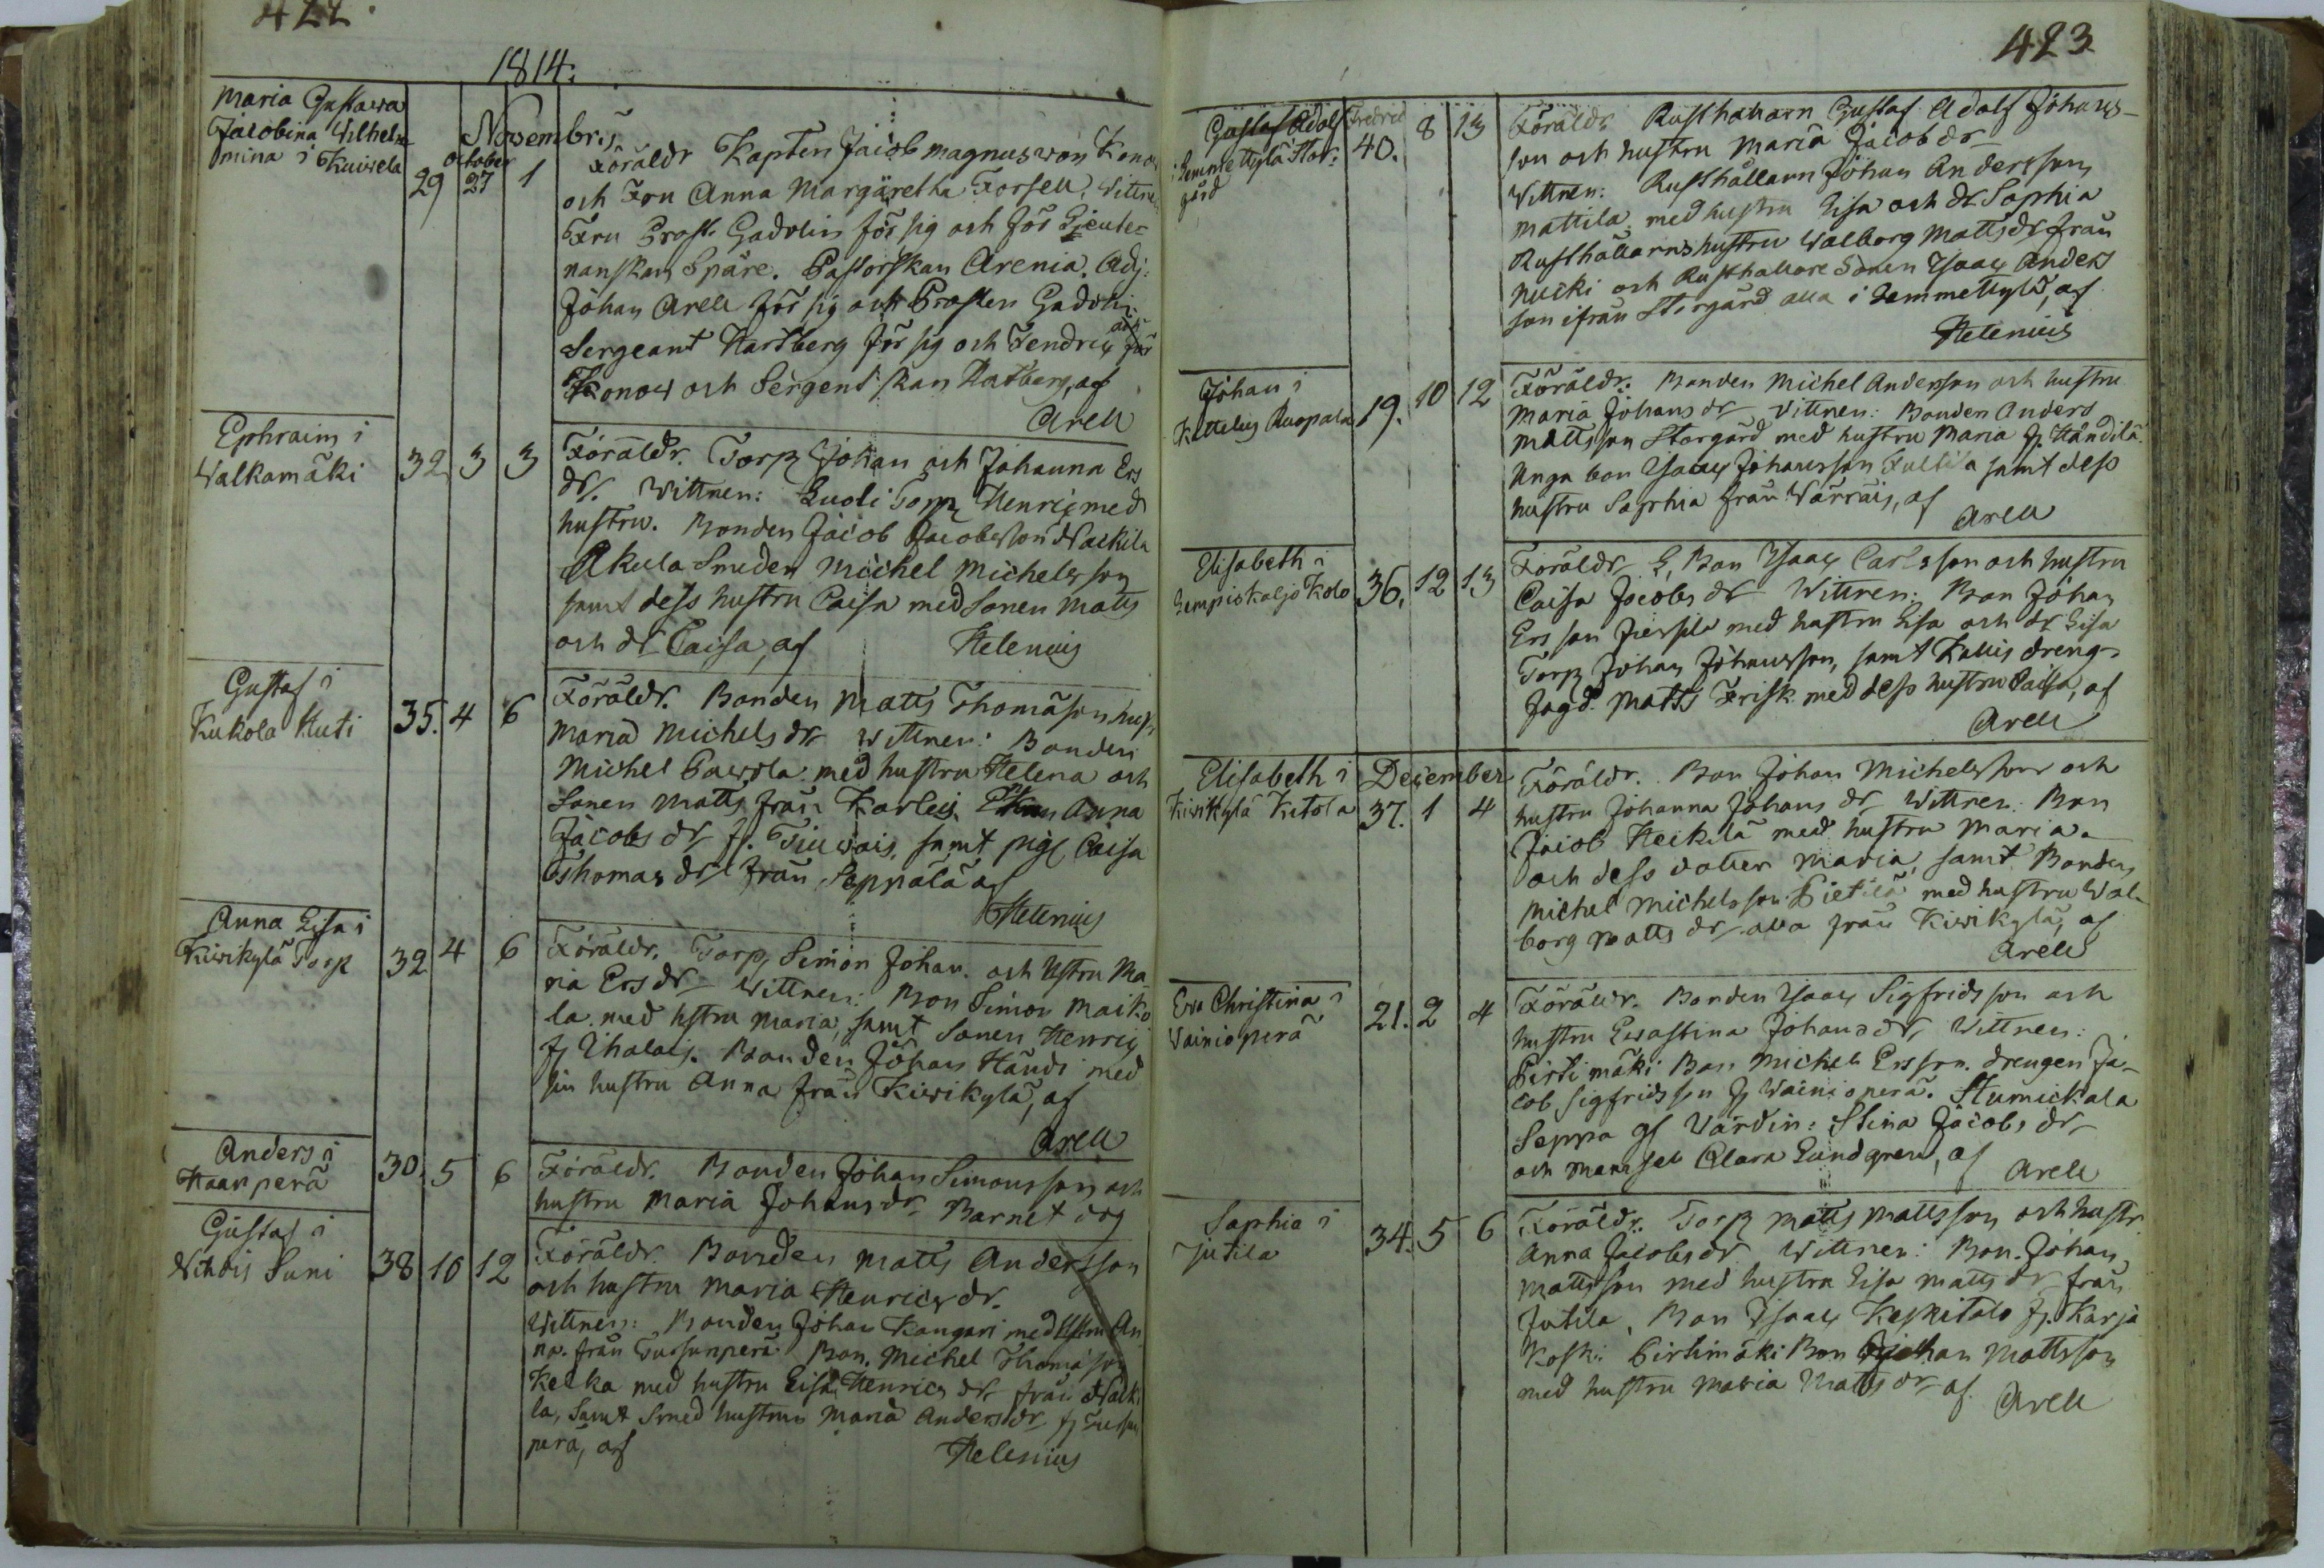 422.
1814.
Maria Gustawa
Jacobina Wilhel-
mina i Kuisela
Novembris
October
29 27 1
Föräldr Kapten Jacob Magnus von Kono
och Fru Anna Margaretha Forsell. Wittne
Fru Prost. Gadolin för sig och för Lieute-
nanskan Spåre. Pastorskan Arenia. Adj:
Johan Arell för sig och Prosten Gadolin
Sergeant Hartberg för sig och Fendric
Konow och Sergent skan Hartberg, af
Arell
Ephraim i
Walkamäki
32 3 3
Föräldr. Torp Johan och Johanna Ers
dr. Wittnen: Luoli Torp Henric med
hustru. Bonden Jacob Jacobsson Nackila
Akula Smeden Michel Michelsson
samt dess hustru Caisa med Sonen Matts
och dr Caisa, af Helenius
Gustaf i
Kukola Kuti
35. 4 6
Föräldr. Bonden Matts Thomason hust
Maria Michels dr Wittnen: Bonden
Michel Pawola med hustru Helena och
Sonen Matts från Karleis. Anna
Jacobs dr fr. samt pig. Caisa
Thomas dr från Seppälä af
Helenius
Anna Lisa i
Kiwikylä Torp
32 4 6
Föräldr. Torp. Simon Johan. och hstru Ma-
ria Ers dr Wittnen: Bon Simon Maiko
la med hstru Maria, samt Sonen Henric
fr Uhalais. Bonden Johan Händi med
sin hustru Anna från Kiwikylä, af
Arell
Anders i
Haanperä
30. 5 6
Föräldr. Bonden Johan Simonsson och
hustru Maria Johans dr Barnet dog
Gustaf i
Nihois Suni
38 10 12
Föräldr. Bonden Matts Andersson
och hustru Maria Henrics dr.
Wittnen: Bonden Johan Kangari med hstru An
na. från Tursunperä Bon. Michel Thomason
Kelka med hustru Lisa Henrics dr från Nacki
la, Samt Smed hustrun Maria Anders dr fr Tursun
perä, af Helenius
423
Gustaf Adolf Fredric
i Lemmettylä Stor-
gård
40. 8 13
Föräldr Rusthållarn Gustaf Adolf Johans-
son och hustru Maria Jacobs dr
Wittnen: Rusthållarn Johan Andersson
Mattila med hustru Lisa och dr Sophia
Rusthållarns hustru Walborg Matts dr från
Nucki och Rusthållare Sonen Isaac Anders
son ifrån Storgård alla i Lemmettylä, af
Helenius
Johan i
Kettelus Ruopala
19. 10 12
Föräldr. Bonden Michel Andersson och hustru
Maria Johans dr Wittnen: Bonden Anders
Mattsson Storgård med hustru Maria fr Händilä
Unga bon Isaac Johansson Fulsila samt dess
hustru Sophia från Wärräis, af
Arell
Elisabeth i
Lempiskaljo Kolo
36. 12 13
Föräldr. G. Bon Isaac Carlsson och hustru
Caisa Jacobs dr Wittnen: Bon Johan
Ersson Jussila med hustru Lisa och dr Lisa
Torp Johan Johansson, samt Kallis dreng
Jagd. Matts Frisk med dess hustru Caisa, af
Arell
Elisabeth i
Kiwikylä Kitola
December
37. 1 4
Föräldr. Bon Johan Michelsson och
hustru Johanna Johans dr Wittnen: Bon
Jacob Heikilä med hustru Maria
och dess dotter Maria, samt Bonden
Michel Michelsson Pietilä med hustru Wal-
borg Matts dr alla från Kiwikylä, af
Arell
Eva Christina i
Wainionperä
21. 2 4
Föräldr. Bonden Isaac Sigfridsson och
hustru Ewastina Johans dr Wittnen:
Pirtimäki Bon Michel Ersson. drengen Ja-
cob Sigfridsson fr Wainionperä. Stumickala
Seppa gl Värdin: Stina Jacobs dr
och Mamsel Clara Lundgren, af Arell
Sophia i
Jutila
34. 5 6
Föräldr. Torp Matts Mattsson och hustr
Anna Jacobs dr Wittnen: Bon. Johan
Mattsson med hustru Lisa Matts dr från
Jutila, Bon Isaac Keskitalo fr. Karja
Koski Pirtimäki Bon Johan Mattsson
med hustru Maria Matts dr af. Arell